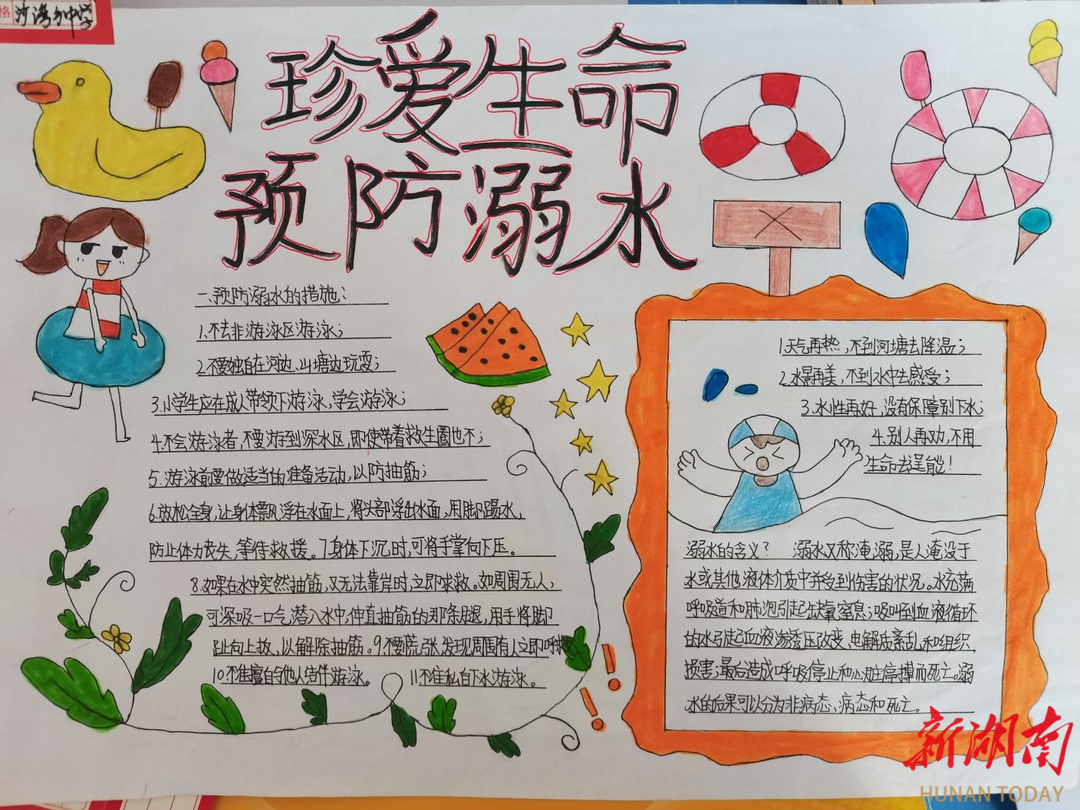 沙湾乡中学
珍爱生命
预防溺水
一、预防溺水的措施：
1.不去非游泳区游泳；
2.不要独自在河边、山塘边玩耍；
3.小学生应在成人带领下游泳，学会游泳；
4.不会游泳者，不要游到深水区，即使带着救生圈也不；
5.游泳前要做适当的准备活动，以防抽筋；
6.放松全身，让身体飘浮在水面上，将头部浮出水面，用脚踢水，
防止体力丧失，等待救援。7.身体下沉时，可将手掌向下压。
8.如果在水中突然抽筋，又无法靠岸时，立即求救。如周围无人，
可深吸一口气潜入水中，伸直抽筋的那条腿，用手将脚
趾向上扳，以解除抽筋。9.不要慌张，发现周围有人立即呼救
10.不准擅自与他人结伴游泳。 11.不准私自下水游泳。
1.天气再热，不到河塘去降温；
2.水景再美，不到水中去感受；
3.水性再好，没有保障别下水；
4.别人再劝，不用
生命去逞能！
溺水的含义？ 溺水又称淹溺，是人淹没于
水或其他液体介质中并受到伤害的状况。水充满
呼吸道和肺泡引起缺氧窒息；吸收到血液循环
的水引起血液渗透压改变、电解质紊乱和组织
损害；最后造成呼吸停止和心脏停搏而死亡。溺
水的后果可以分为非病态、病态和死亡。
新湖南
HUNAN TODAY